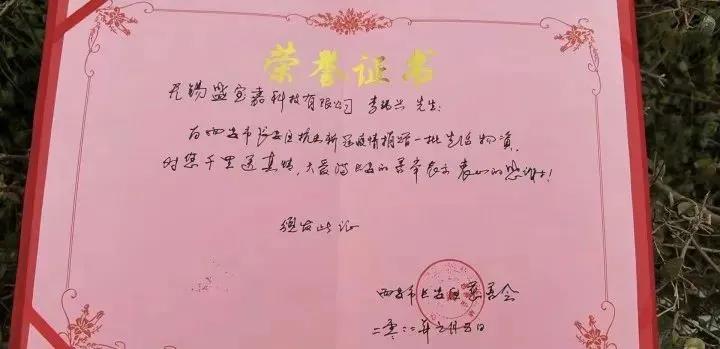 荣誉证书
无锡盛宝嘉科技有限公司 李 兴 先生:
为西安市长安区抗击新冠疫情捐赠一批生活物资,
对您千里送真情,大爱 长安的善举表示衷心的感谢!
颁发此证
西安市长安区慈善会
二〇二二年元月五日